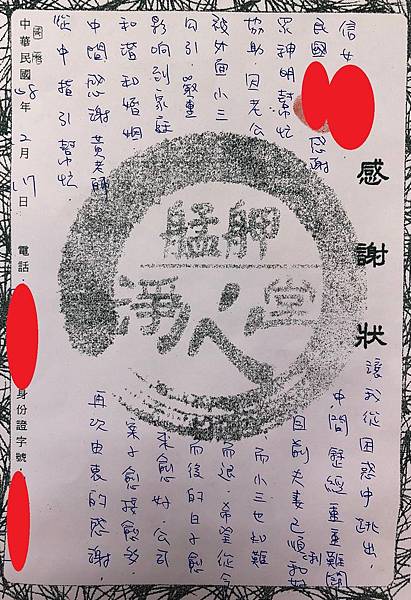 感謝狀
信女
民國 感謝
眾神明幫忙
協助.因老公
被外面小三
勾引.嚴重
影響到家庭
和諧和婚姻
中間感謝黃老師
從中指引幫忙
讓我從困惑中跳出,
中間歷經重重難關
目前夫妻已順利和好
而小三也知難
而退.希望從今
而後的日子愈
來愈好.公司
案子愈接愈多.
再次由衷的感謝.
國曆
中華民國108年2月17日 電話: 身份證字號:
艋舺
淨人堂